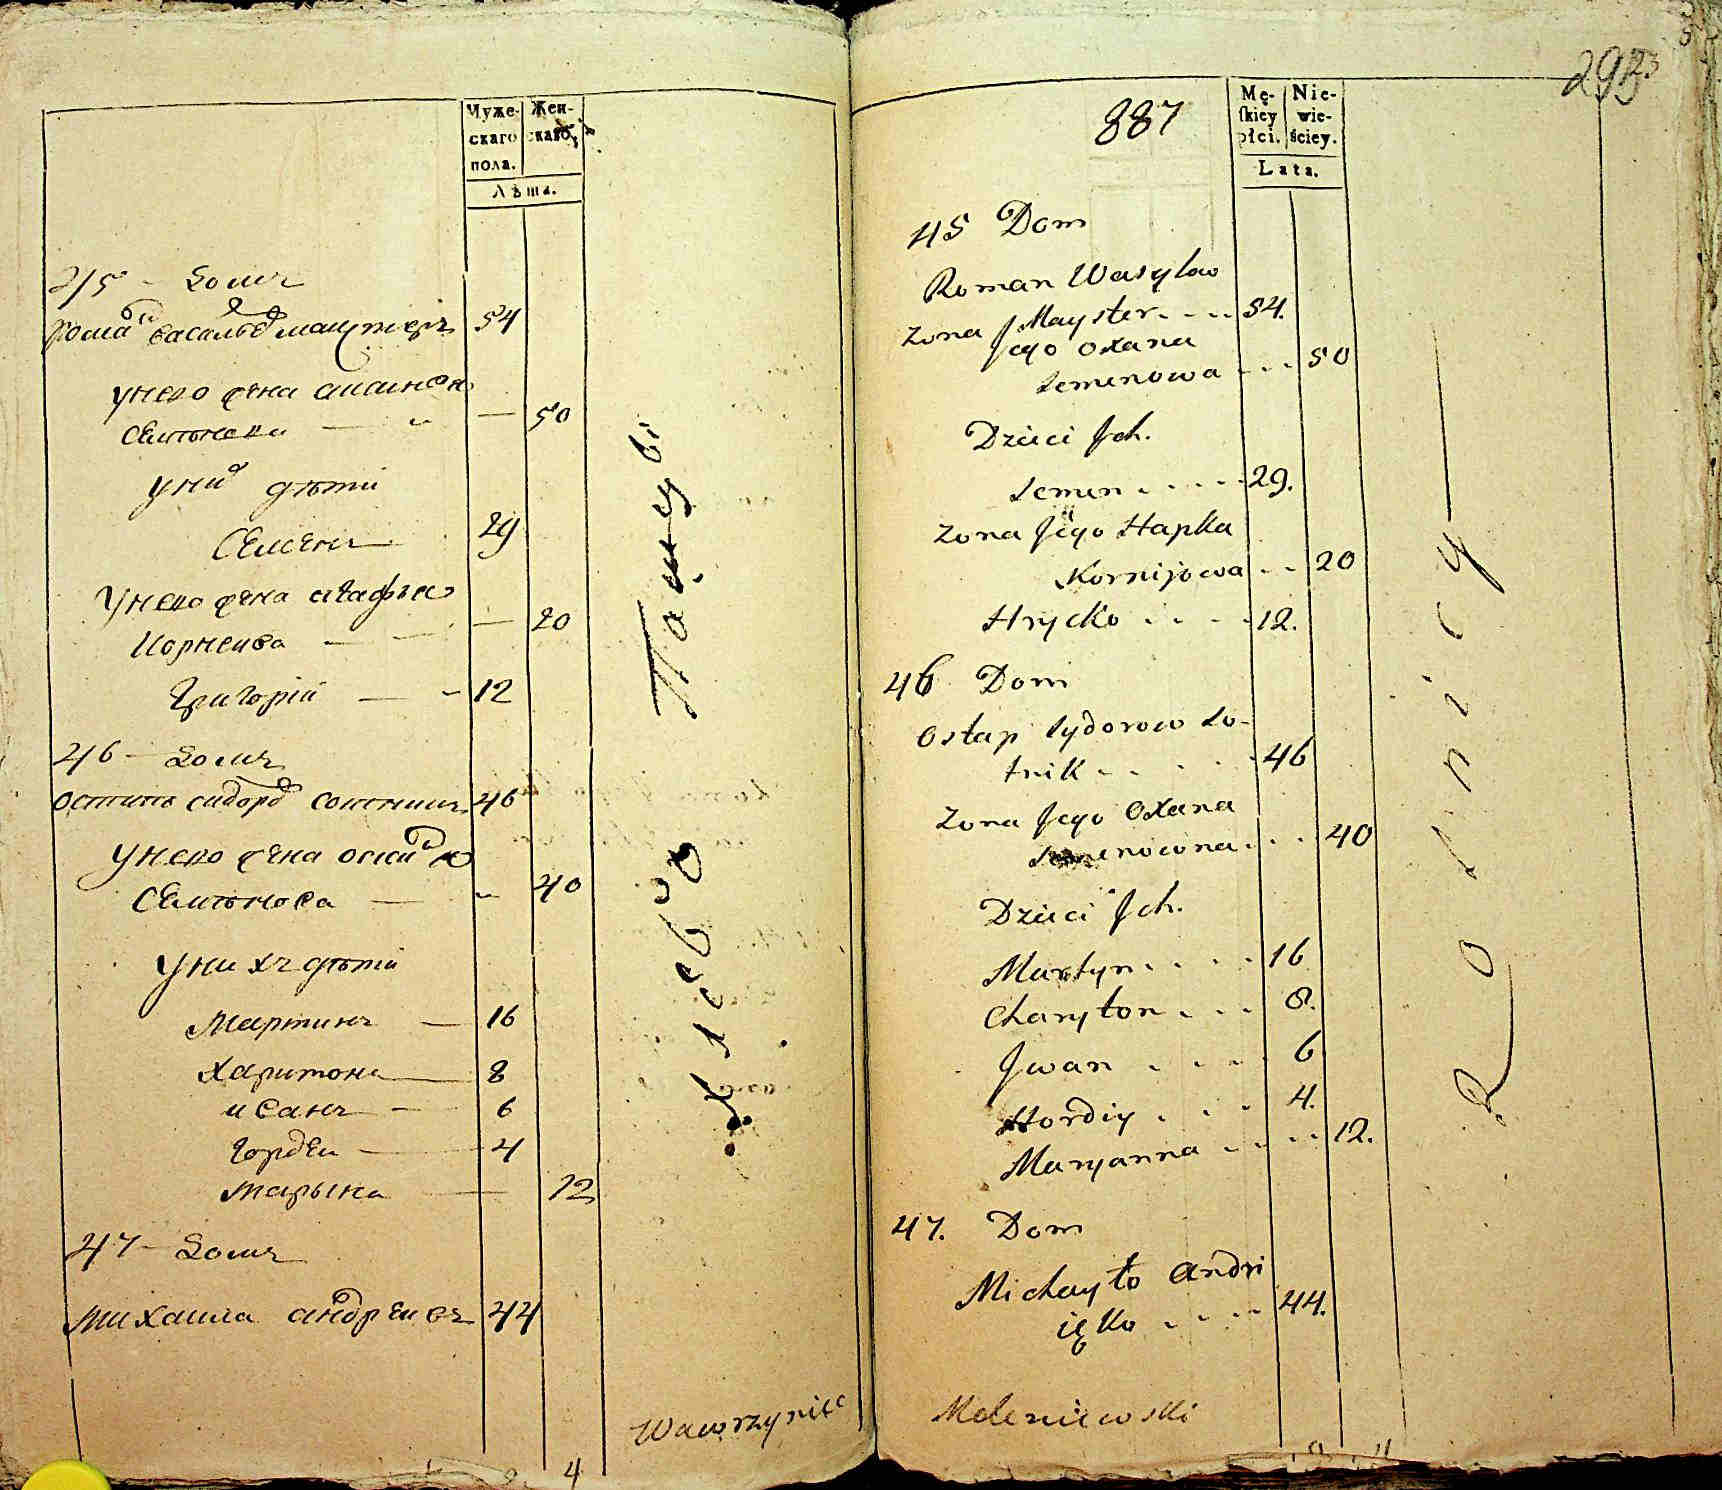 Муже-
скаго
пола.
Жен-
скаго.
Лѣта.
45 - Домъ
Романъ Васильевъ Майстеръ 54
У него жена
Семенова — 50
У них дѣти
Семенъ 29
У него жена Агафья
Корнеива — 20
Григорій — 12
46 - Домъ
Остапъ Сидоровъ Сотникъ 46
У него жена
Семенова — 40
У нихъ дѣти
Мартинъ — 16
Харитонъ — 8
Иванъ — 6
Гордей — 4
Марьяна — 12
47 - Домъ
Михаила Андреивъ 44
Wawrzyniec
4
293
887
Mę-
ſkiey
płci.
Nie-
wie-
ściey.
Lata.
45 Dom
Roman Wasylow
Mayster. - - - 54.
Zona Jego Oxana
Semenowa - - - 50
Dzieci Jch.
Semen - - - - 29.
Zona Jego Hapka
Kornijowa - - 20
Hrycko - - - - 12.
46 Dom
Ostap Sydorow So-
tnik - - - - 46
Zona Jego Oxana
Semenowna - - - 40
Dzieci Jch.
Martyn - - - - 16
Charyton - - - 8.
Jwan - - - - 6
Hordiy - - - 4.
Maryanna - - - - 12.
47. Dom
Michayło Andri
ięko - - - - 44.
Rolnicy